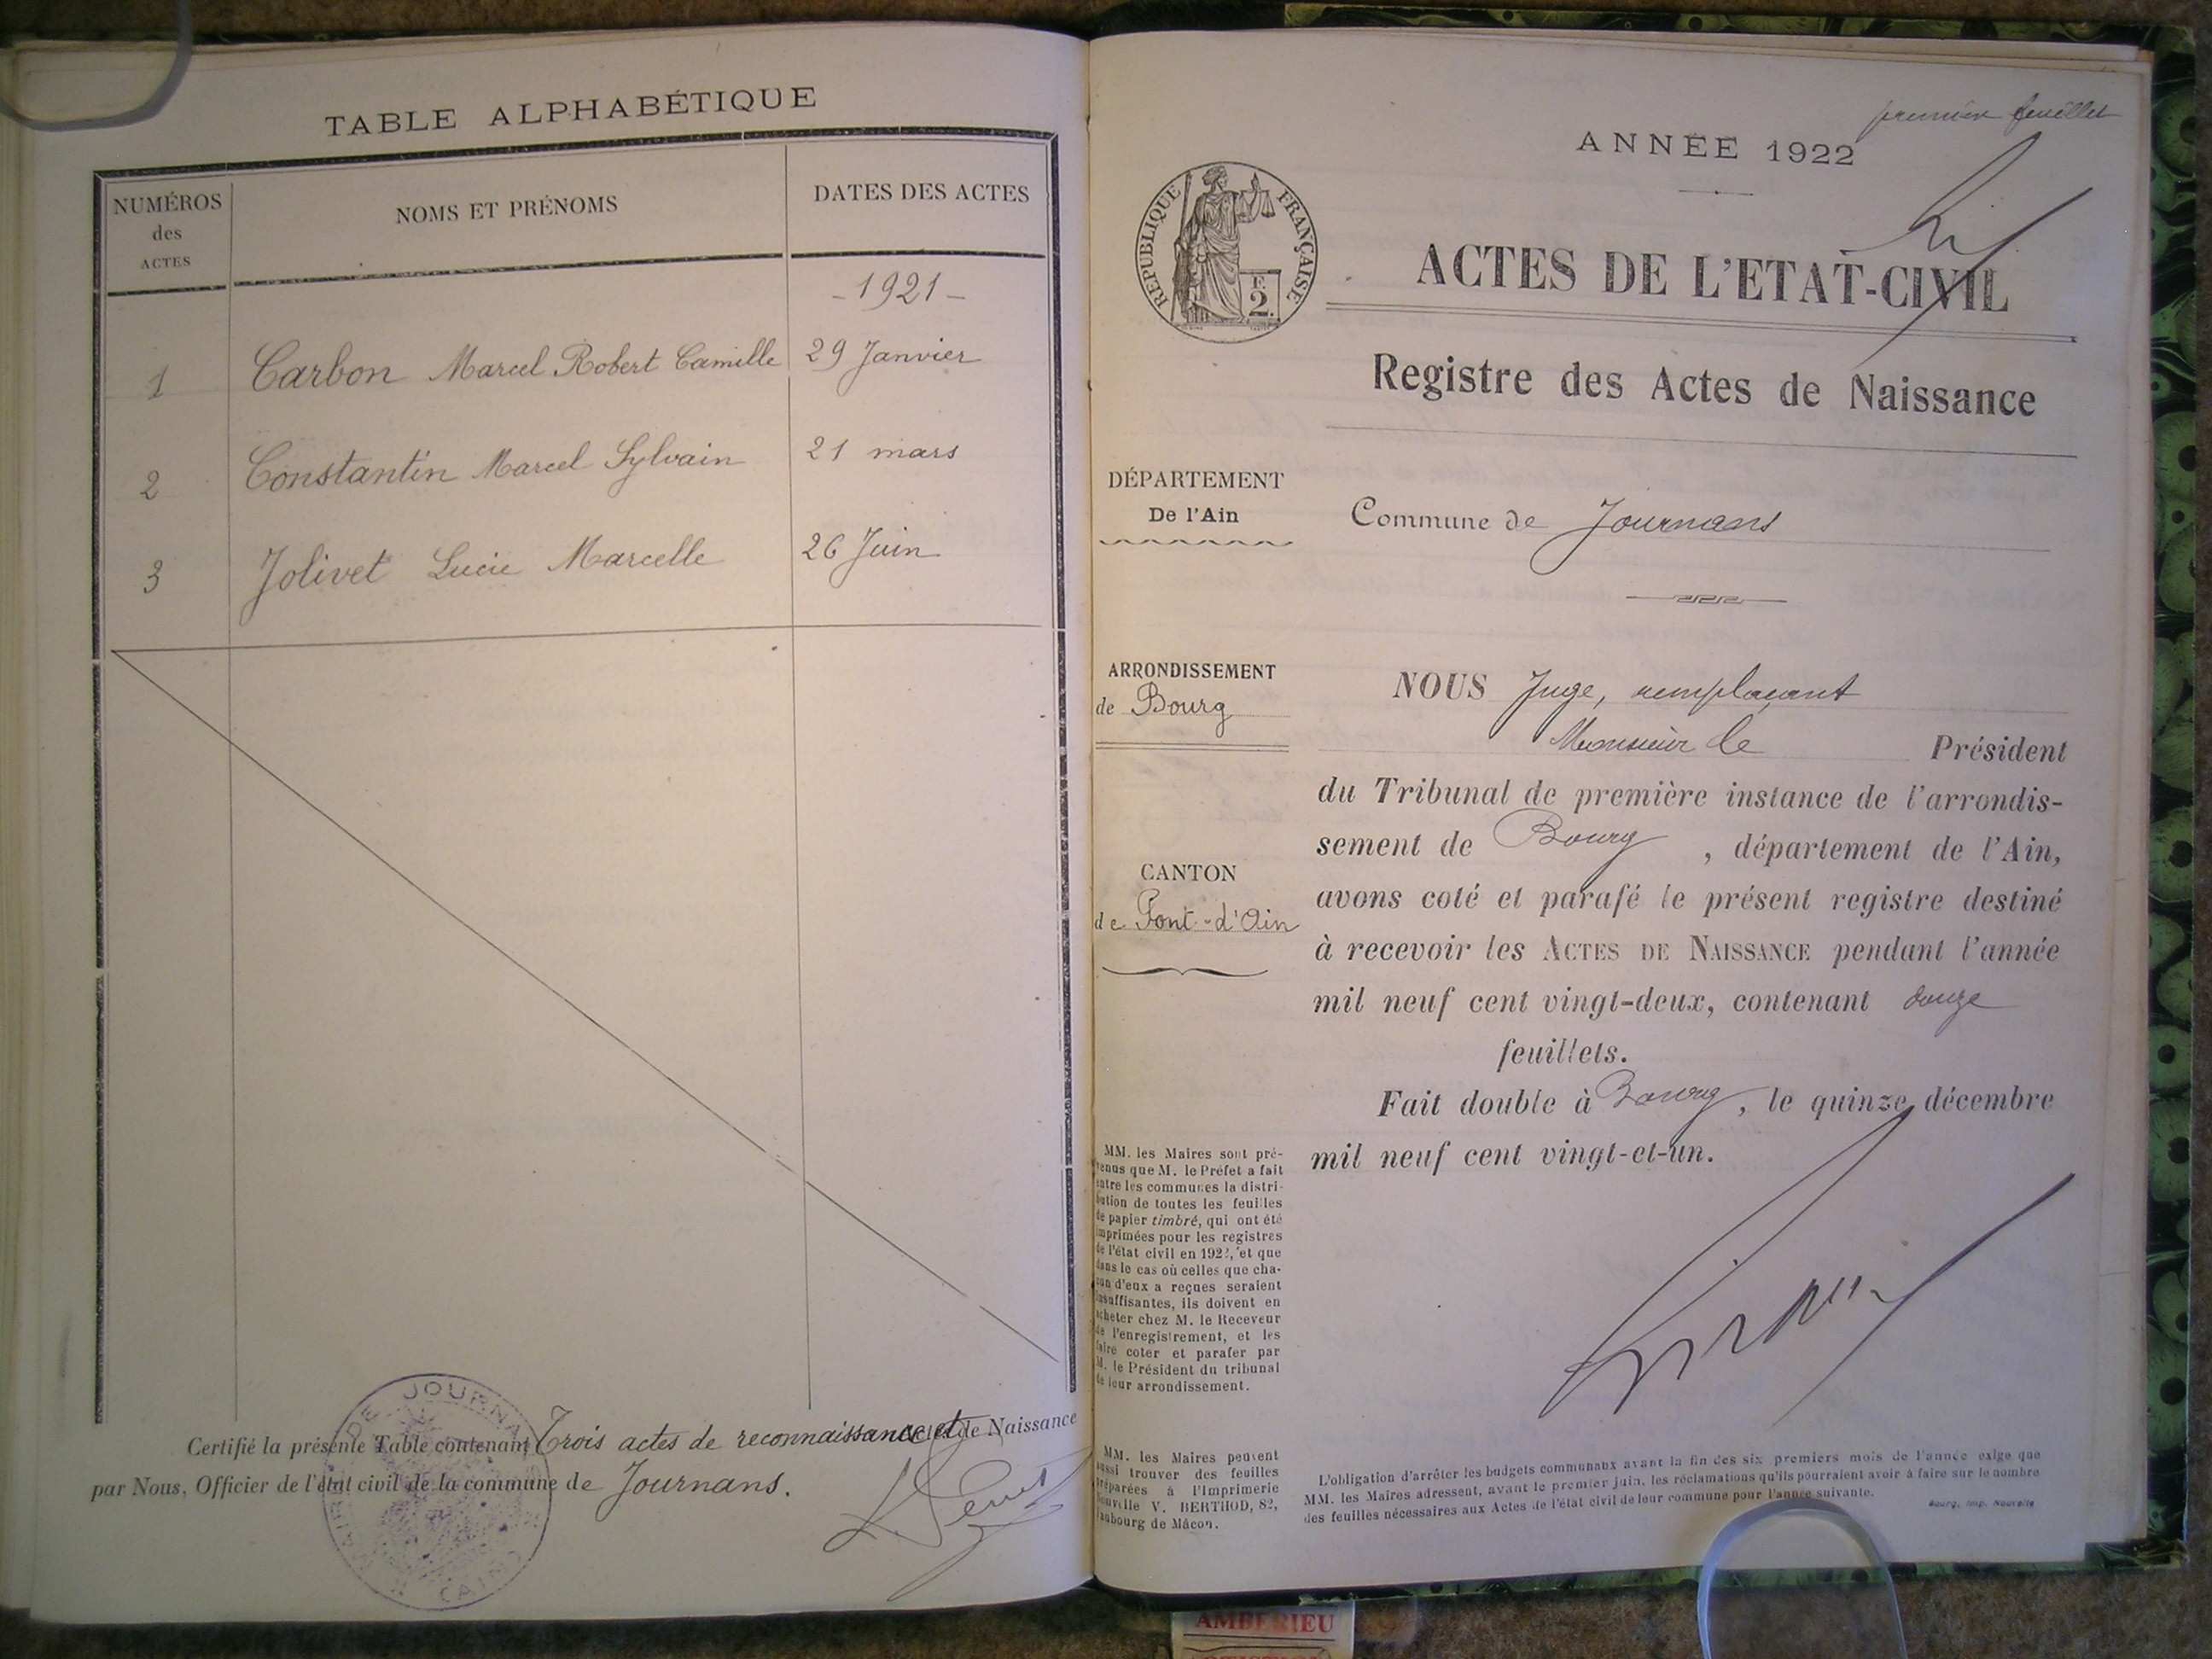 TABLE ALPHABÉTIQUE
NUMÉROS
des
ACTES
NOMS ET PRÉNOMS
DATES DES ACTES
- 1921 -
1 Carbon Marcel Robert Camille 29 Janvier
2 Constantin Marcel Sylvain 21 mars
3 Jolivet Lucie Marcelle 26 Juin
Certifié la présente Table contenant Trois actes de reconnaissance et de Naissance
par Nous, Officier de l'état civil de la commune de Journans.
premier feuillet
ANNÉE 1922
RÉPUBLIQUE FRANÇAISE
2
ACTES DE L'ETAT-CIVIL
Registre des Actes de Naissance
DÉPARTEMENT
De l'Ain
Commune de Journans
ARRONDISSEMENT
de Bourg
CANTON
de Pont-d'Ain
NOUS Juge, remplaçant
Monsieur le Président
du Tribunal de première instance de l'arrondis-
sement de Bourg, département de l'Ain,
avons coté et parafé le présent registre destiné
à recevoir les ACTES DE NAISSANCE pendant l'année
mil neuf cent vingt-deux, contenant douze
feuillets.
Fait double à Bourg, le quinze décembre
mil neuf cent vingt-et-un.
MM. les Maires sont pré-
venus que M. le Préfet a fait
entre les communes la distri-
bution de toutes les feuilles
de papier timbré, qui ont été
imprimées pour les registres
de l'état civil en 1922, et que
dans le cas où celles que cha-
cun d'eux a reçues seraient
insuffisantes, ils doivent en
acheter chez M. le Receveur
de l'enregistrement, et les
faire coter et parafer par
M. le Président du tribunal
de leur arrondissement.
MM. les Maires peuvent
aussi trouver des feuilles
préparées à l'Imprimerie
Nouvelle V. BERTHOD, 82,
faubourg de Mâcon.
L'obligation d'arrêter les budgets communaux avant la fin des six premiers mois de l'année exige que
MM. les Maires adressent, avant le premier juin, les réclamations qu'ils pourraient avoir à faire sur le nombre
des feuilles nécessaires aux Actes de l'état civil de leur commune pour l'année suivante.
Bourg, Imp. Nouvelle
AMBERIEU